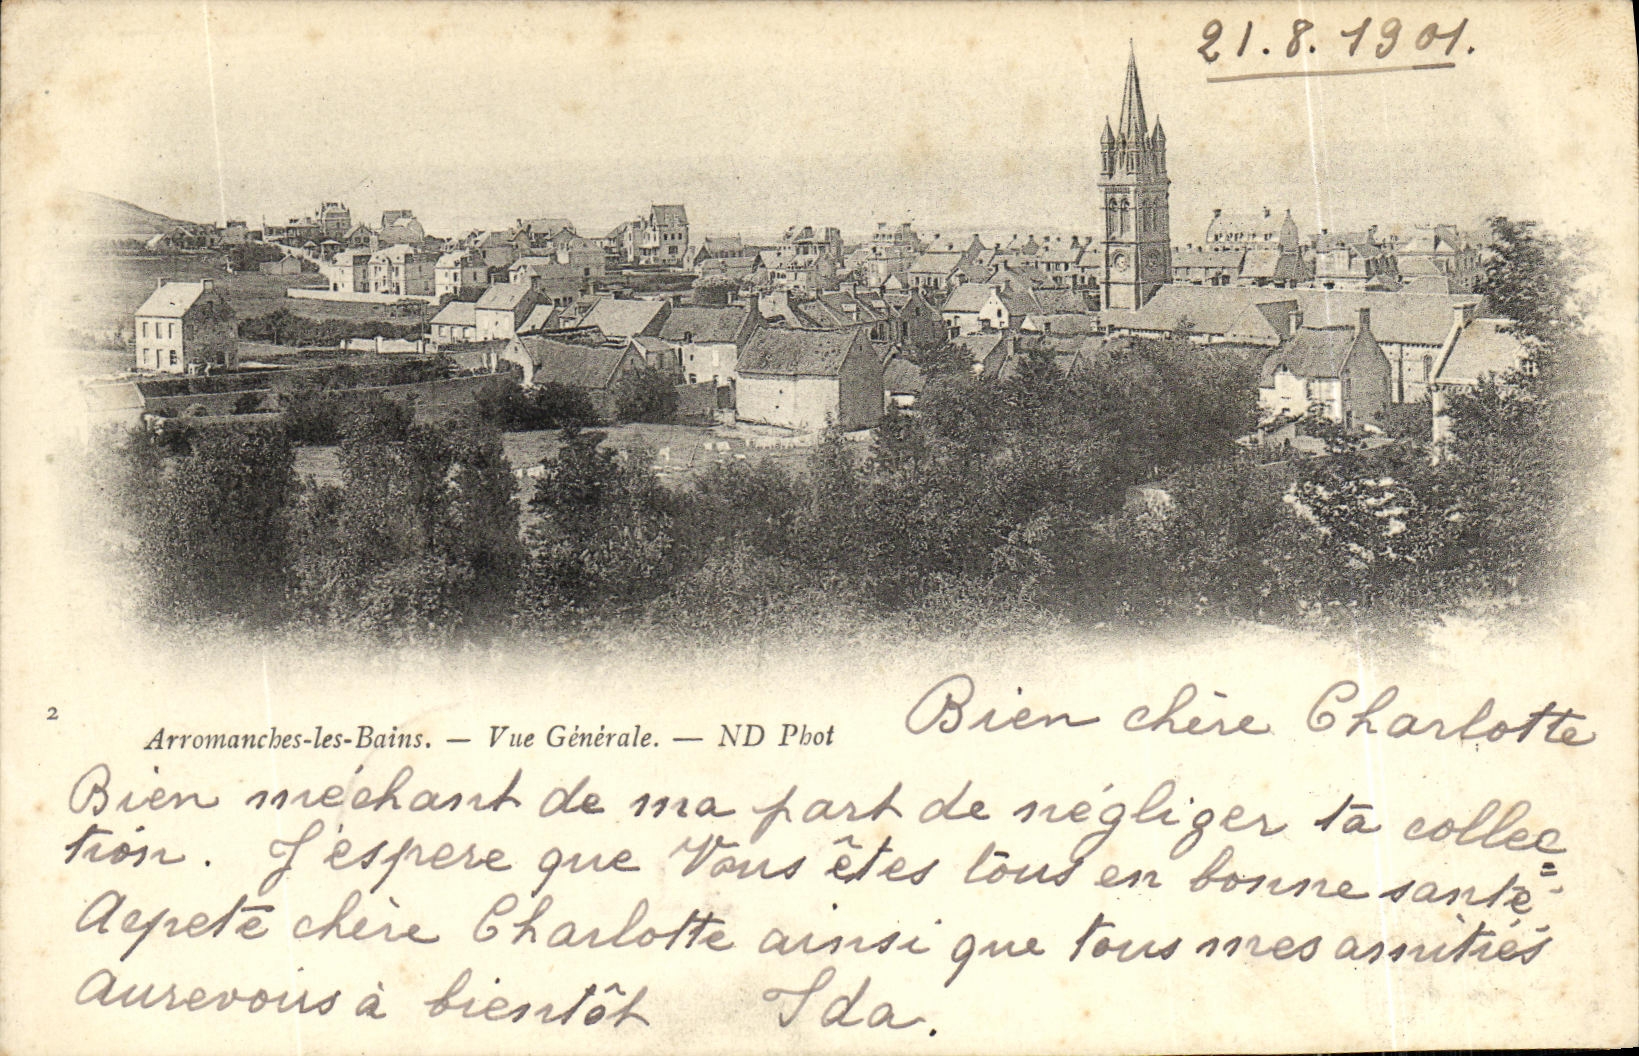 21.8.1901.
2
Arromanches-les-Bains. — Vue Générale. — ND Phot
Bien chère Charlotte
Bien méchant de ma part de négliger ta collec=
tion. J'éspere que Vous êtes tous en bonne santé.
chère Charlotte ainsi que tous mes amitiés
Aurevoirs à bientôt Ida.